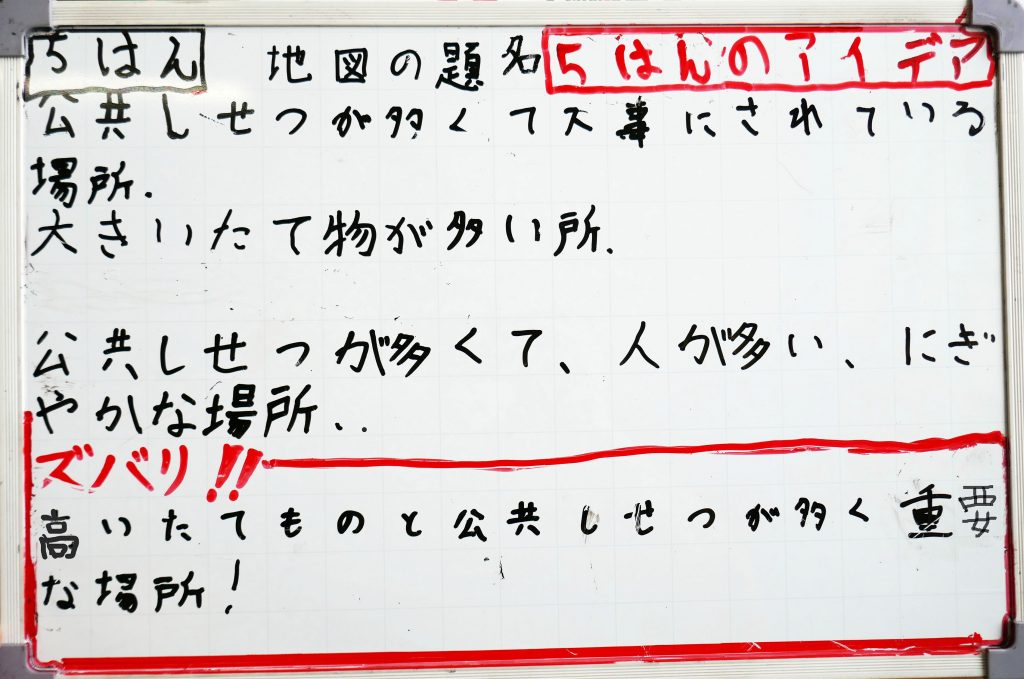 5はん 地図の題名 5はんのアイデア
公共しせつが多くて大事にされている
場所.
大きいたて物が多い所.
公共しせつが多くて、人が多い、にぎ
やかな場所..
ズバリ!!
高いたてものと公共しせつが多く重要
な場所!